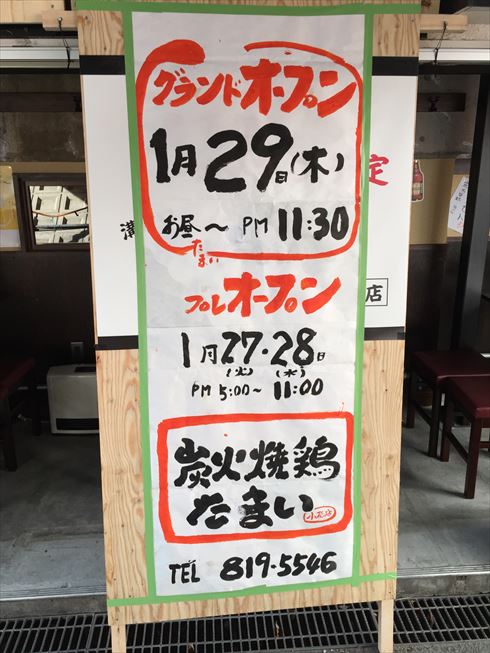 グランドオープン
1月29日(木)
お昼〜 PM 11:30
たまい
プレオープン
1月27・28日
(火) (水)
PM 5:00〜 11:00
炭火焼鶏
たまい
TEL 819-5546
定
店